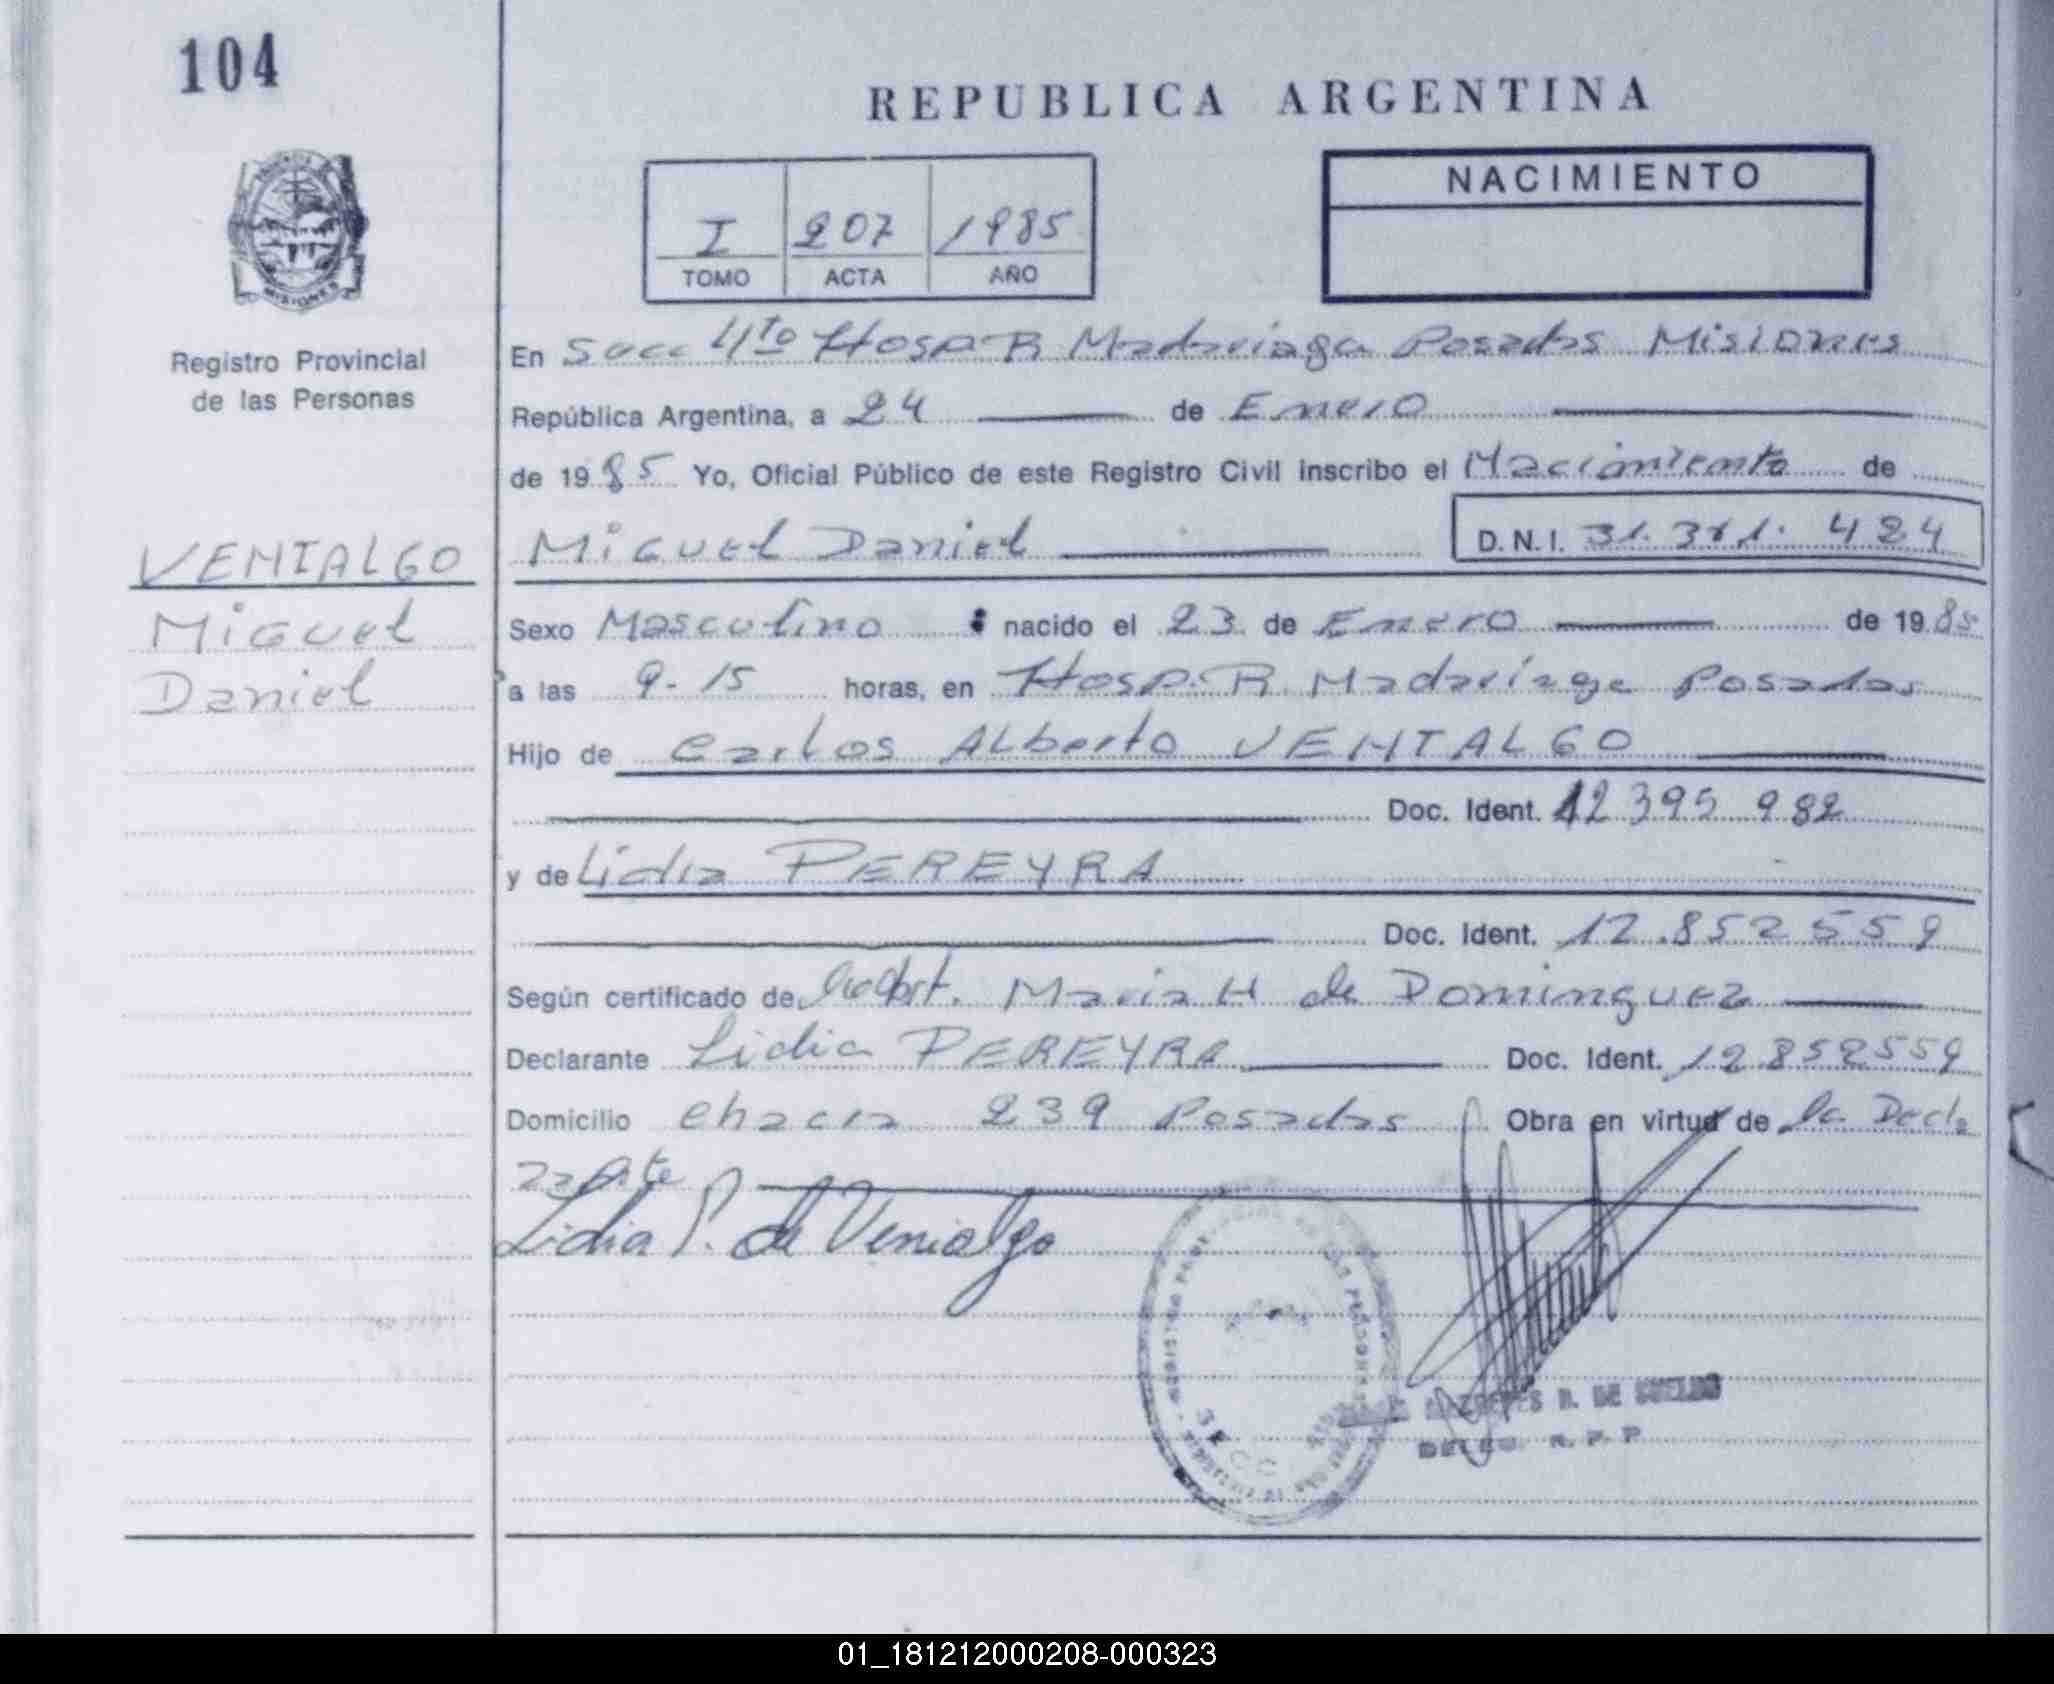 104
REPUBLICA ARGENTINA
NACIMIENTO
I 207 1985
TOMO ACTA AÑO
MISIONES
Registro Provincial
de las Personas
En Secc 4to Hosp R Madariaga Posadas Misiones
República Argentina, a 24 de Enero
de 1985 Yo, Oficial Público de este Registro Civil inscribo el Nacimiento de
VENIALGO
Miguel
Daniel
Miguel Daniel D.N.I. 31.311.424
Sexo Masculino nacido el 23 de Enero de 1985
a las 9-15 horas, en Hosp. R Madariaga Posadas
Hijo de Carlos Alberto VENIALGO
Doc. Ident. 12 395 982
y de Lidia PEREYRA
Doc. Ident. 12.852559
Según certificado de Maria H de Dominguez
Declarante Lidia PEREYRA Doc. Ident. 12.852559
Domicilio Chacra 239 Posadas Obra en virtud de la Decla
Lidia P. de Venialgo
R. P. P
01_181212000208-000323